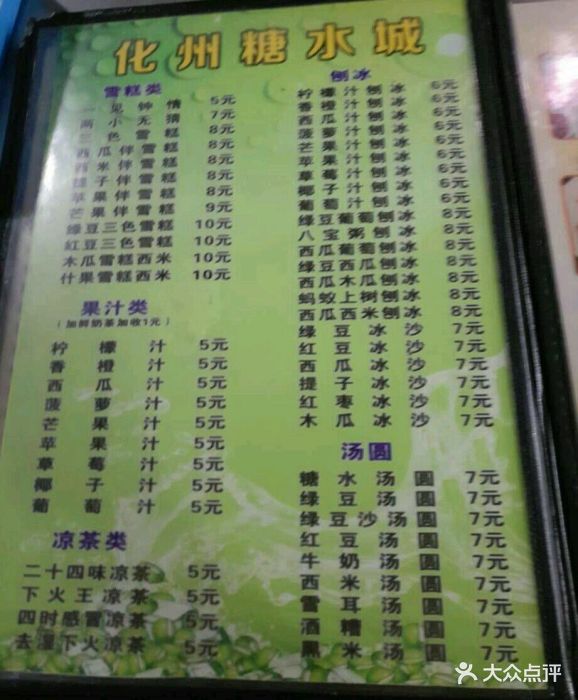 化州糖水城
雪糕类
一见钟情 5元
两小无猜 7元
三色雪糕 8元
西瓜伴雪糕 8元
西米伴雪糕 8元
提子伴雪糕 8元
苹果伴雪糕 8元
芒果伴雪糕 9元
绿豆三色雪糕 10元
红豆三色雪糕 10元
木瓜雪糕西米 10元
什果雪糕西米 10元
果汁类
(加鲜奶茶加收1元)
柠檬汁 5元
香橙汁 5元
西瓜汁 5元
菠萝汁 5元
芒果汁 5元
苹果汁 5元
草莓汁 5元
椰子汁 5元
葡萄汁 5元
凉茶类
二十四味凉茶 5元
下火王凉茶 5元
四时感冒凉茶 5元
去湿下火凉茶 5元
刨冰
柠檬汁刨冰 6元
香橙汁刨冰 6元
西瓜汁刨冰 6元
菠萝汁刨冰 6元
芒果汁刨冰 6元
苹果汁刨冰 6元
草莓汁刨冰 6元
椰子汁刨冰 6元
葡萄汁刨冰 6元
绿豆葡萄刨冰 8元
八宝粥刨冰 8元
西瓜葡萄刨冰 8元
绿豆西瓜刨冰 8元
西瓜木瓜刨冰 8元
蚂蚁上树刨冰 8元
西瓜西米刨冰 8元
绿豆冰沙 7元
红豆冰沙 7元
西瓜冰沙 7元
提子冰沙 7元
红枣冰沙 7元
木瓜冰沙 7元
汤圆
糖水汤圆 7元
绿豆汤圆 7元
绿豆沙汤圆 7元
红豆汤圆 7元
牛奶汤圆 7元
西米汤圆 7元
雪耳汤圆 7元
酒糟汤圆 7元
黑米汤圆 7元
大众点评